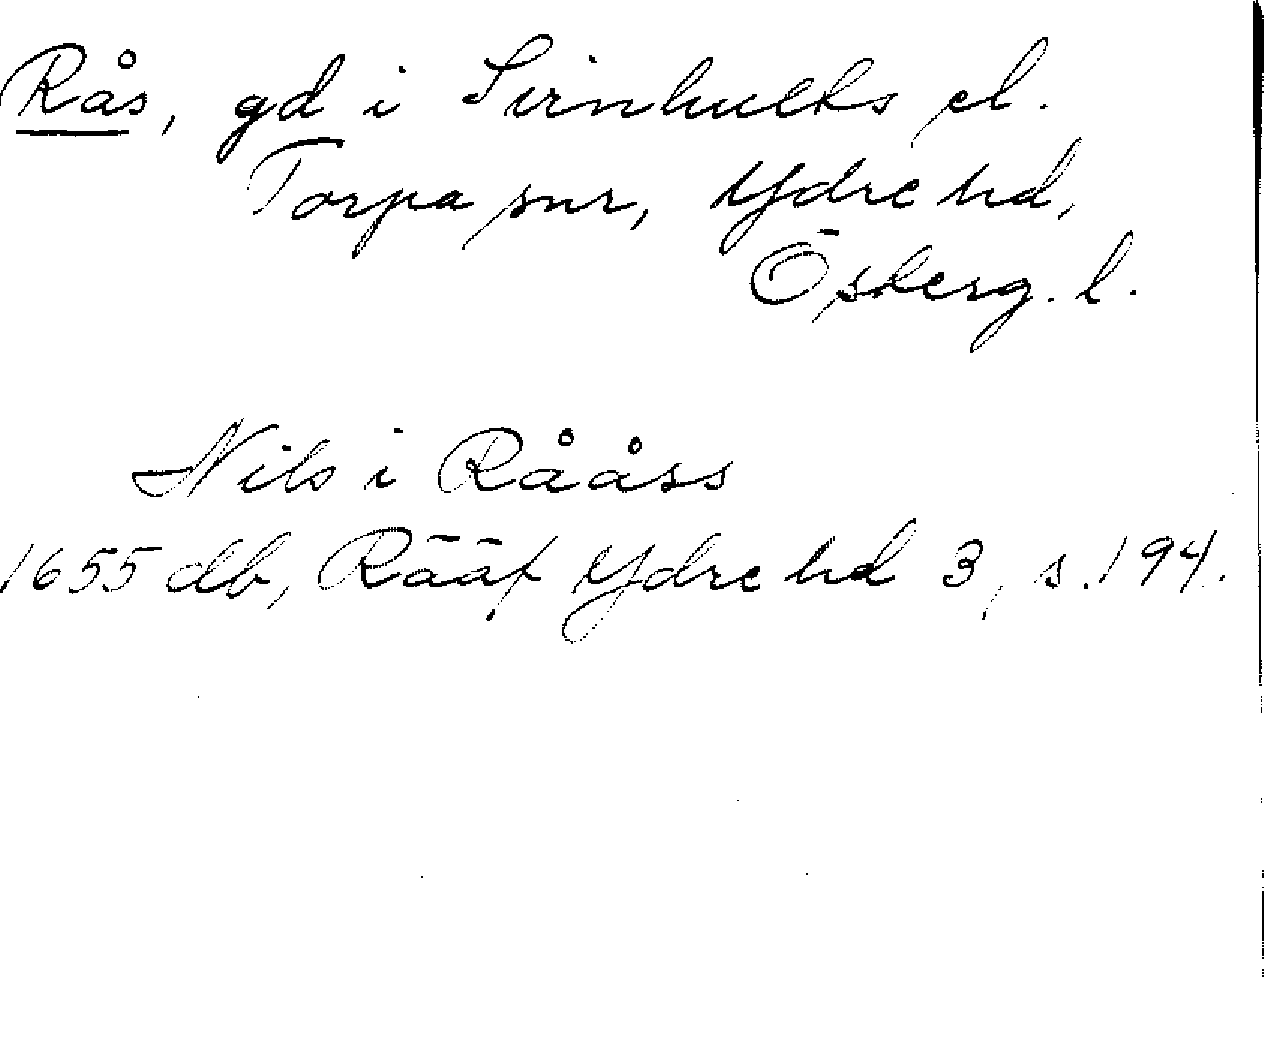 Rås, gd i Svinhults el.
Torpa snr, Ydre hd,
Österg. l.
Nils i Rååss
1655 db, Rääf Ydre hd 3, s. 194.